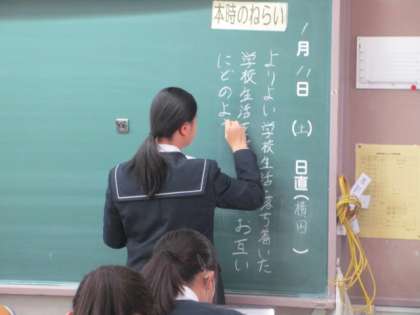 本時のねらい
1月11日(土)日直(横田)
よりよい学校生活・落ち着いた
学校生活
お互い
にどのよ